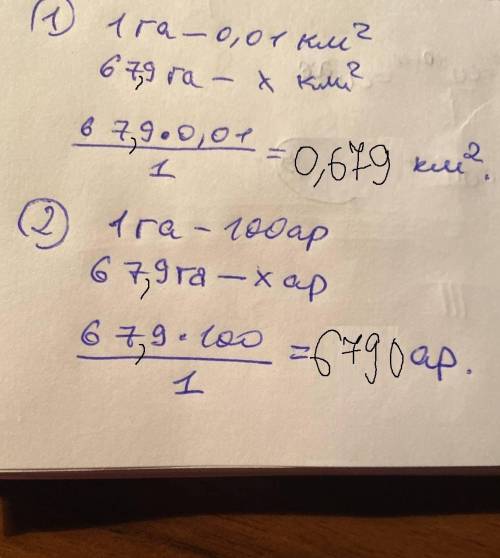 (1) 1 га – 0,01 км²
67,9 га – х км²
67,9 · 0,01 / 1 = 0,679 км².
(2) 1 га – 100 ар
67,9 га – х ар
67,9 · 100 / 1 = 6790 ар.